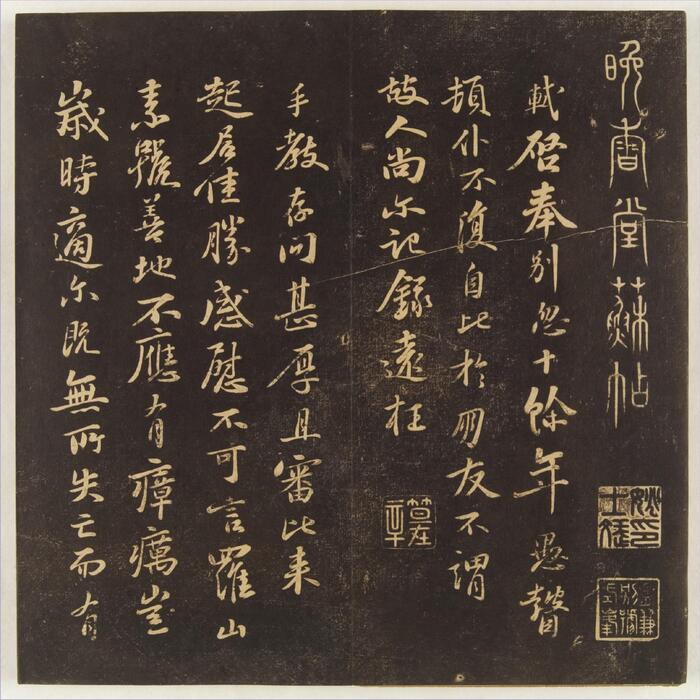 晚香堂蘇帖
軾啓奉別忽十餘年愚瞽
頓仆不復自比於朋友不謂
故人尚尓記錄遠枉
手教存問甚厚且審比來
起居佳勝感慰不可言羅山
素號善地不應有瘴癘豈
歲時適尓既無所失亡而有